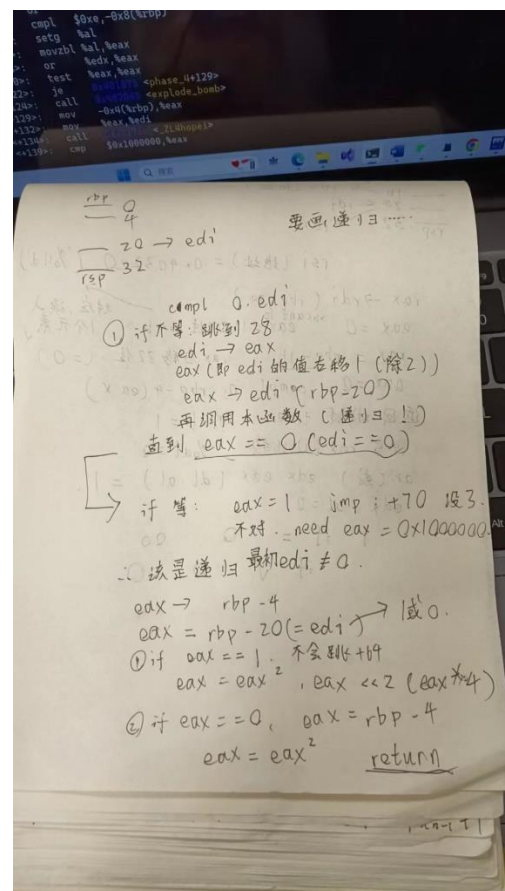 cmpl $0xe,-0x8(%rbp)
setg %al
movzbl %al,%eax
or %edx,%eax
test %eax,%eax
je <phase_4+129>
call <explode_bomb>
mov -0x4(%rbp),%eax
mov %eax,%edi
call <_ZL4hopei>
cmp $0x1000000,%eax
rbp 0
4
要画递归……
20 → edi
rsp 32
cmpl 0. edi
① if 不等: 跳到 28
edi → eax
eax (即 edi 的值右移 1 (除2))
eax → edi (rbp-20)
再调用本函数 (递归!)
直到 eax == 0 (edi == 0)
if 等: eax = 1 jmp i+70 没了.
不对. need eax = 0x1000000.
∴ 该是递归 最初edi ≠ 0.
eax → rbp - 4
eax = rbp - 20 (= edi) → 1或0.
① if eax == 1. 不会跳+64
eax = eax², eax << 2 (eax*=4)
② if eax == 0, eax = rbp - 4
eax = eax² return